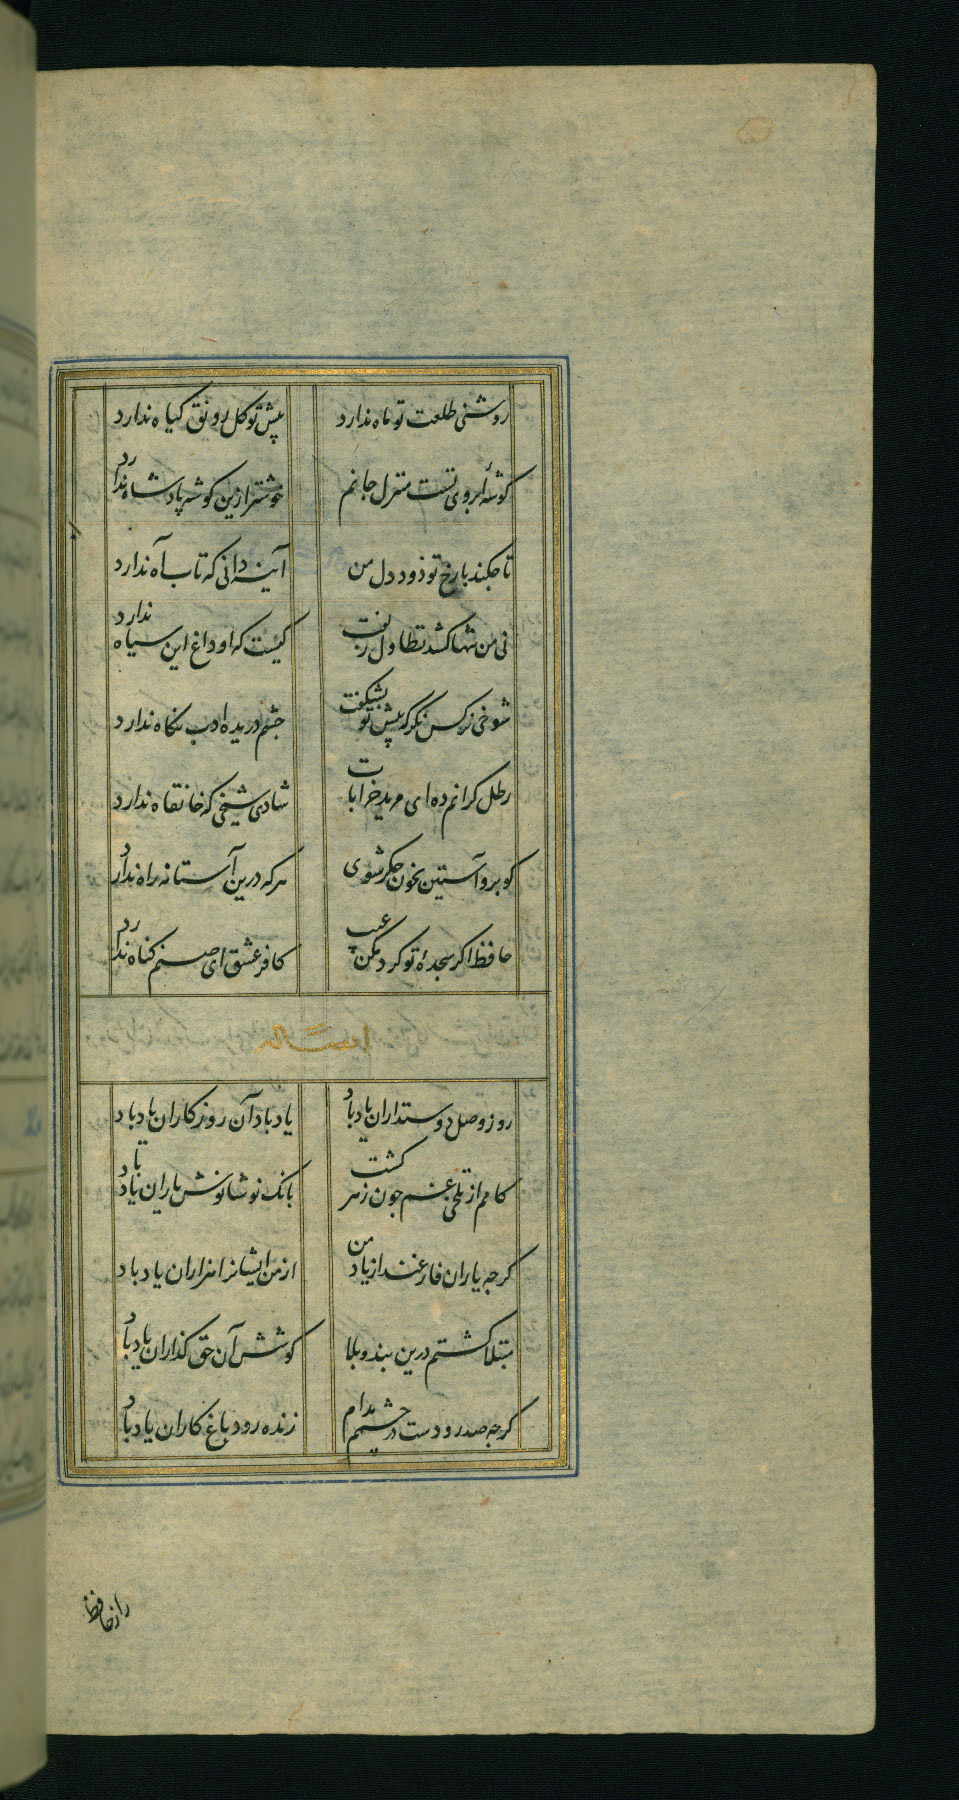 روشنی طلعت تو ماه ندارد پیش تو کل رونق کیاه ندارد
کوشهٔ ابروی تست منزل جانم خوشتر ازین کوشه پادشاه ندارد
تا چکند با رخ تو دود دل من آینه دانی که تاب آه ندارد
نی من تنها کشم تطاول زلفت کیست که او داغ این سیاه ندارد
شوخی نرکس نکر که پیش تو بشکفت چشم دریده ادب نکاه ندارد
رطل کرانم ده ای مرید خرابات شادی شیخی که خانقاه ندارد
کو برو آستین بخون جکر شوی هر که درین آستانه راه ندارد
حافظ اکر سجدهٔ تو کرد مکن عیب کافر عشق ای صنم کناه ندارد
ایضا له
روز وصل دوستداران یاد باد یاد باد آن روزکاران یاد باد
کامم از تلخی غم چون زهر کشت بانک نوشانوش یاران یاد باد
کرچه یاران فارغند از یاد من از من ایشانرا هزاران یاد باد
مبتلا کشتم درین بند و بلا کوشش آن حق کذاران یاد باد
کرچه صد رودست در چشمم مدام زنده رود باغ کاران یاد باد
راز حافظ